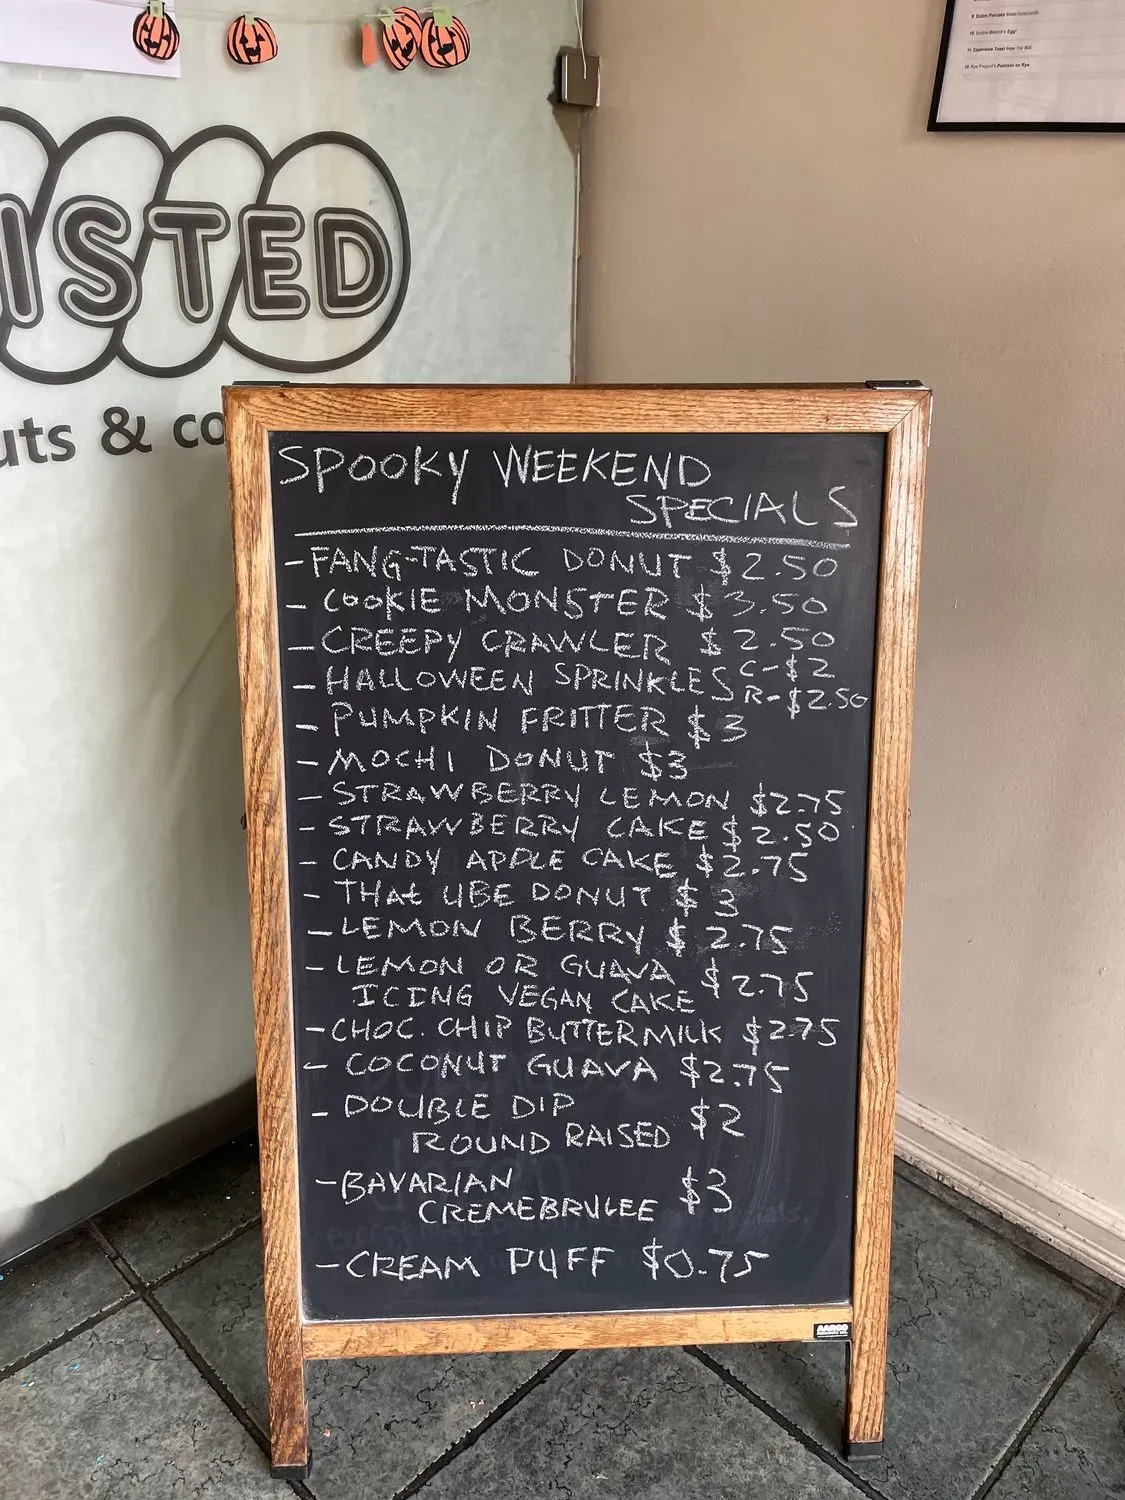 8. Dutch Pancake from Outerlands
11. Expensive Toast from The Mill
ISTED
uts & co
SPOOKY WEEKEND
SPECIALS
- FANG-TASTIC DONUT $2.50
- COOKIE MONSTER $3.50
- CREEPY CRAWLER $2.50
- HALLOWEEN SPRINKLES C-$2
R-$2.50
- PUMPKIN FRITTER $3
- MOCHI DONUT $3
- STRAWBERRY LEMON $2.75
- STRAWBERRY CAKE $2.50
- CANDY APPLE CAKE $2.75
- THAt UBE DONUT $3
- LEMON BERRY $2.75
- LEMON OR GUAVA $2.75
ICING VEGAN CAKE
- CHOC. CHIP BUTTERMILK $2.75
- COCONUT GUAVA $2.75
- DOUBLE DIP $2
ROUND RAISED
- BAVARIAN $3
CREMEBRULEE
- CREAM PUFF $0.75
AARCO